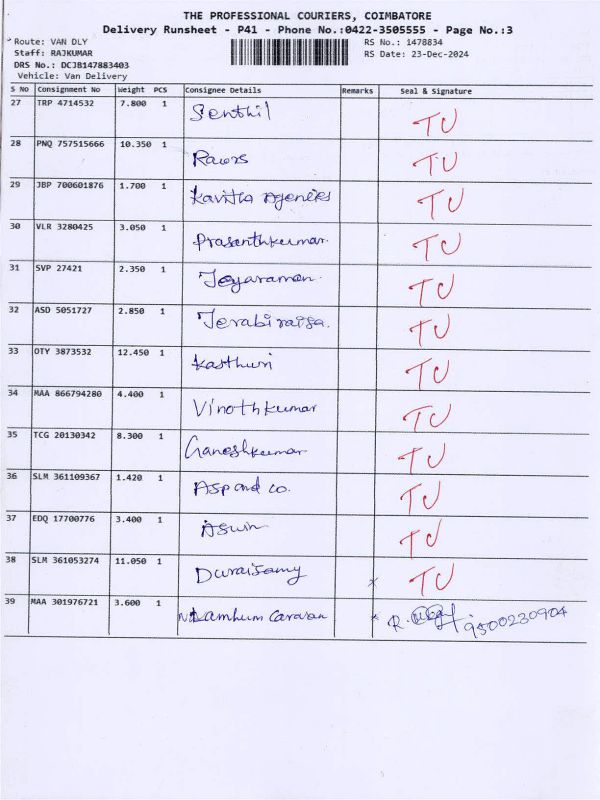 THE PROFESSIONAL COURIERS, COIMBATORE
Delivery Runsheet - P41 - Phone No.:0422-3505555 - Page No.:3
Route: VAN DLY RS No.: 1478834
Staff: RAJKUMAR RS Date: 23-Dec-2024
DRS No.: DCJB147883403
Vehicle: Van Delivery
S No Consignment No Weight PCS Consignee Details Remarks Seal & Signature
27 TRP 4714532 7.800 1 Senthil TU
28 PNQ 757515666 10.350 1 TU
29 JBP 700601876 1.700 1 Kavitha Agencies TU
30 VLR 3280425 3.050 1 Prasanthkumar. TU
31 SVP 27421 2.350 1 Jeyaraman. TU
32 ASD 5051727 2.850 1 TU
33 OTY 3873532 12.450 1 Kasthuri TU
34 MAA 866794280 4.400 1 Vinothkumar TU
35 TCG 20130342 8.300 1 Ganeshkumar TU
36 SLM 361109367 1.420 1 Asp and co. TU
37 EDQ 17700776 3.400 1 Aswin TU
38 SLM 361053274 11.050 1 Duraisamy x TU
39 MAA 301976721 3.600 1 Caravan R. 9500230904